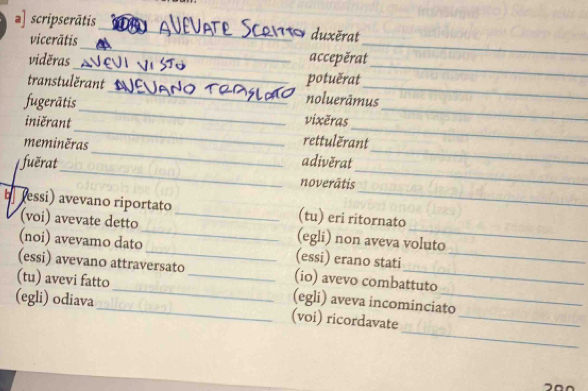 a] scripserātis AVEVATE SCRITTO
vicerātis
vidĕras AVEVI VISTO
transtulĕrant AVEVANO TRASLATO
fugerātis
iniĕrant
meminĕras
fuĕrat
duxĕrat
accepĕrat
potuĕrat
nolueràmus
vixĕras
rettulĕrant
adivĕrat
noverātis
b] (essi) avevano riportato
(voi) avevate detto
(noi) avevamo dato
(essi) avevano attraversato
(tu) avevi fatto
(egli) odiava
(tu) eri ritornato
(egli) non aveva voluto
(essi) erano stati
(io) avevo combattuto
(egli) aveva incominciato
(voi) ricordavate